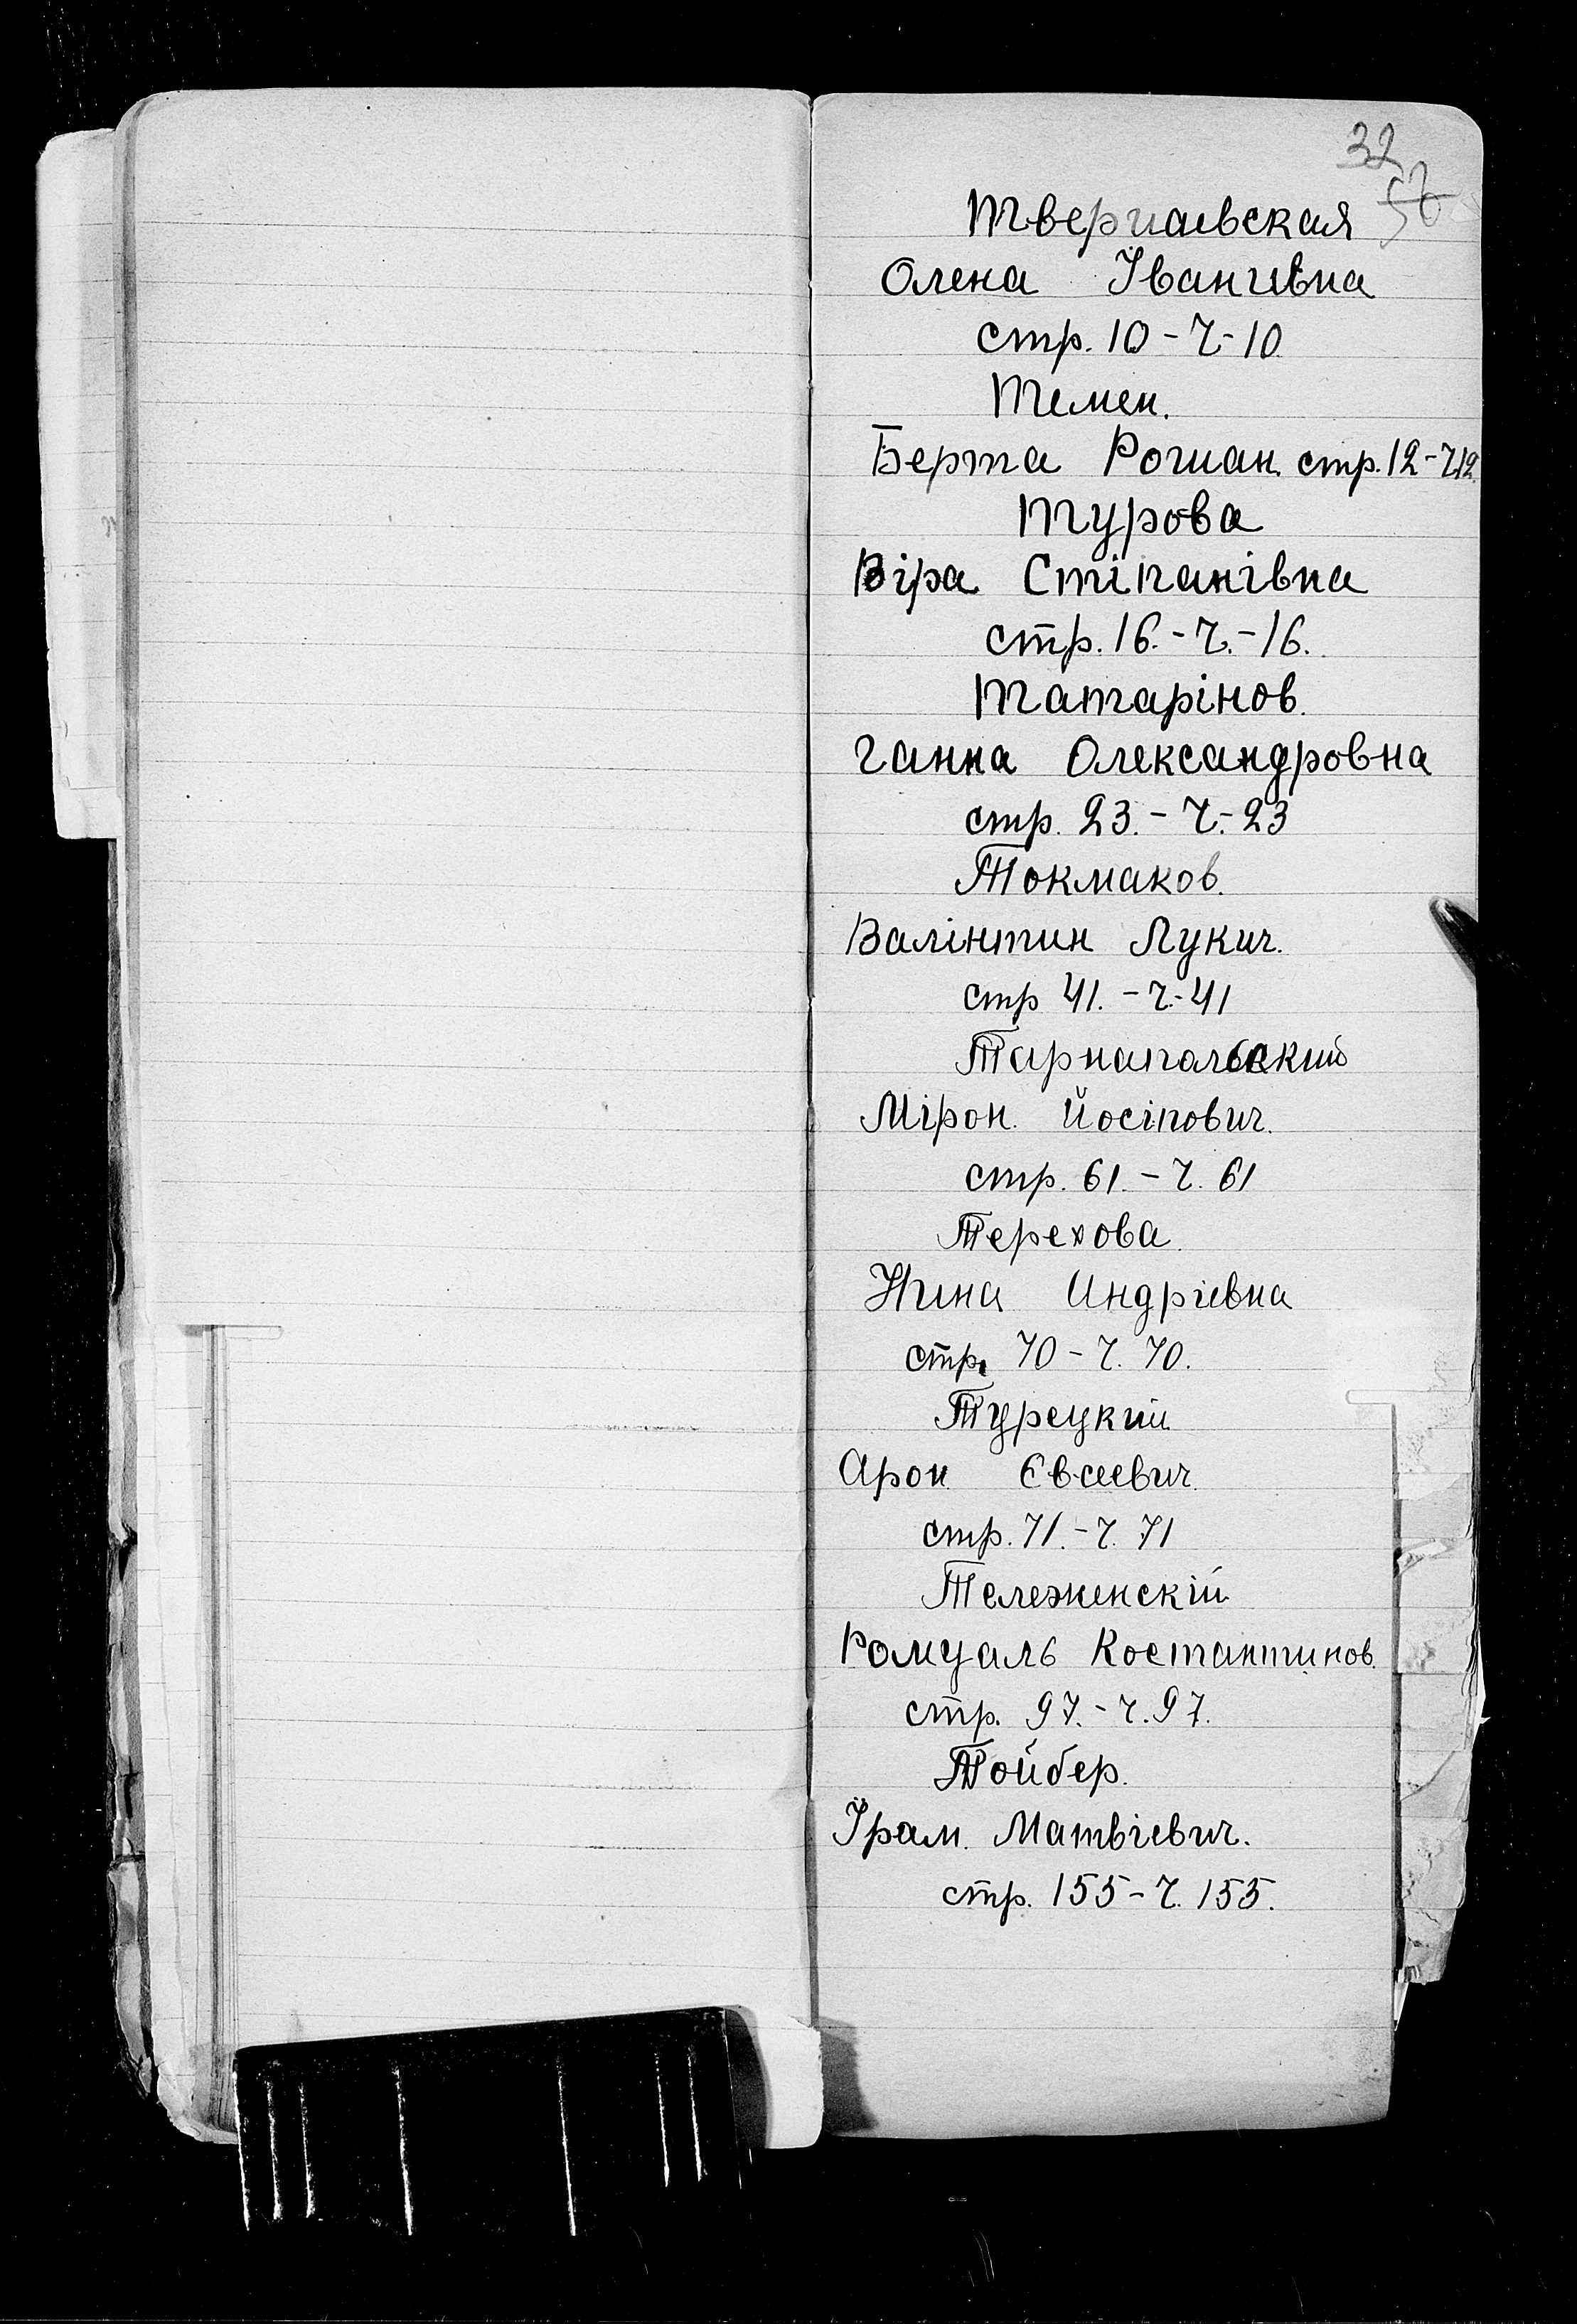 32
56
Твериаевская
Олена Іванивна
стр. 10 - Ч - 10
Темен.
Берта Роман. стр. 12 - Ч 12.
Турова
Віра Стіпанівна
стр. 16. - Ч. - 16.
Татарінов.
Ганна Олександровна
стр. 23. - Ч. - 23
Токмаков.
Валінтин Лукич.
стр 41. - Ч. - 41
Тарнапольский
Мірон. Йосіпович.
стр. 61. - Ч. 61
Терехова.
Ніна Андрієвна
стр. 70 - Ч. 70.
Турецкий
Арон Євсеевич.
стр. 71. - Ч. 71
Тележенскій
Ромуаль Костантинов.
стр. 97. - Ч. 97.
Тойбер.
Їрам. Матвієвич.
стр. 155 - Ч. 155.